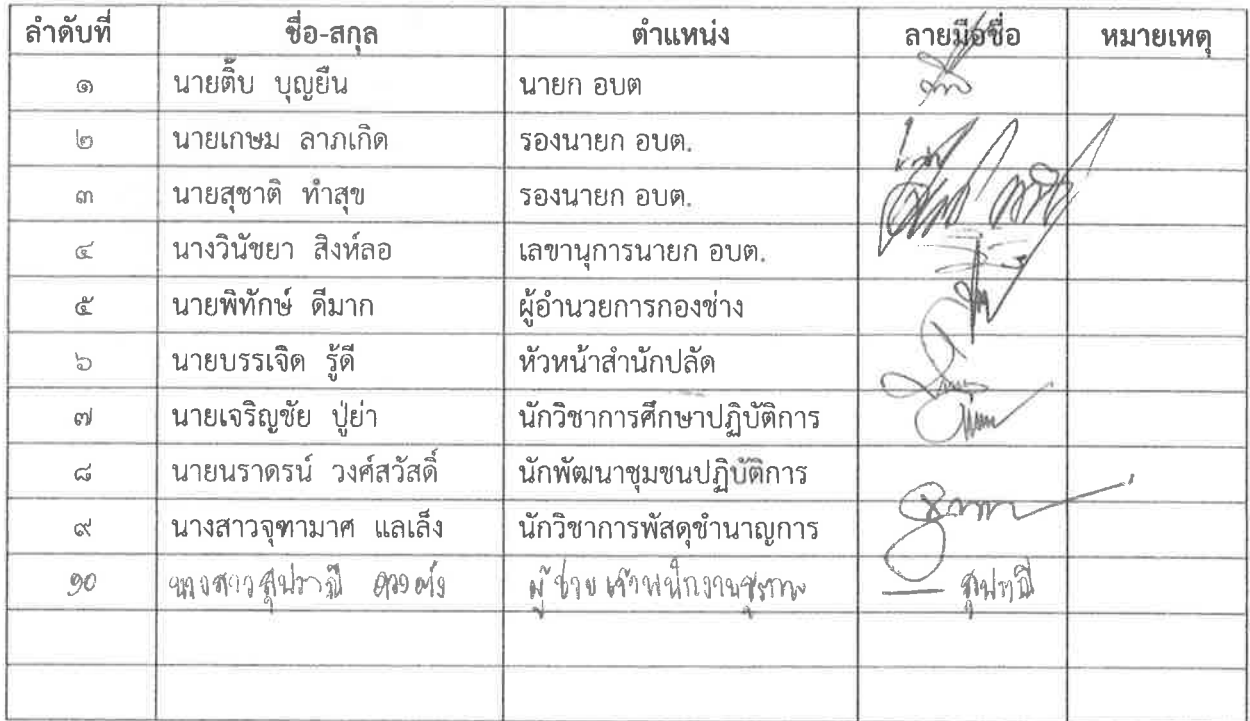 ลำดับที่ ชื่อ-สกุล ตำแหน่ง ลายมือชื่อ หมายเหตุ
๑ นายติ๊บ บุญยืน นายก อบต
๒ นายเกษม ลาภเกิด รองนายก อบต.
๓ นายสุชาติ ทำสุข รองนายก อบต.
๔ นางวินัชยา สิงห์ลอ เลขานุการนายก อบต.
๕ นายพิทักษ์ ดีมาก ผู้อำนวยการกองช่าง
๖ นายบรรเจิด รู้ดี หัวหน้าสำนักปลัด
๗ นายเจริญชัย ปู่ย่า นักวิชาการศึกษาปฏิบัติการ
๘ นายนราดรน์ วงศ์สวัสดิ์ นักพัฒนาชุมชนปฏิบัติการ
๙ นางสาวจุฑามาศ แลเล็ง นักวิชาการพัสดุชำนาญการ
๑๐ นางสาวสุปราณี ผู้ช่วยเจ้าพนักงานธุรการ สุปราณี